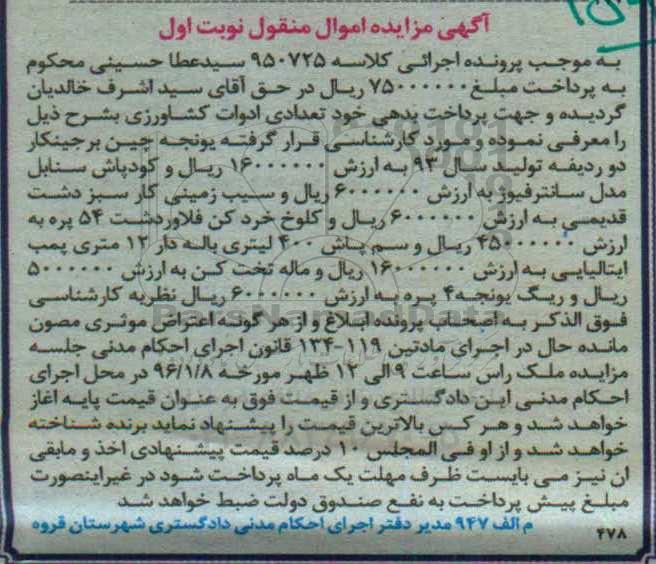 آگهی مزایده اموال منقول نوبت اول
به موجب پرونده اجرائی کلاسه ۹۵۰۷۲۵ سیدعطا حسینی محکوم
به پرداخت مبلغ ۷۵۰۰۰۰۰۰ ریال در حق آقای سید اشرف خالدیان
گردیده و جهت پرداخت بدهی خود تعدادی ادوات کشاورزی بشرح ذیل
را معرفی نموده و مورد کارشناسی قرار گرفته یونجه چین برجینکار
دو ردیفه تولید سال ۹۳ به ارزش ۱۶۰۰۰۰۰۰ ریال و کودپاش سنابل
مدل سانترفیوژ به ارزش ۶۰۰۰۰۰۰ ریال و سیب زمینی کار سبز دشت
قدیمی به ارزش ۶۰۰۰۰۰۰ ریال و کلوخ خرد کن فلاوردشت ۵۴ پره به
ارزش ۴۵۰۰۰۰۰۰ ریال و سم پاش ۴۰۰ لیتری باله دار ۱۲ متری پمپ
ایتالیایی به ارزش ۱۶۰۰۰۰۰۰ ریال و ماله تخت کن به ارزش ۵۰۰۰۰۰۰
ریال و ریگ یونجه۴ پره به ارزش ۶۰۰۰۰۰۰ ریال نظریه کارشناسی
فوق الذکر به اصحاب پرونده ابلاغ و از هر گونه اعتراض موثری مصون
مانده حال در اجرای مادتین ۱۱۹-۱۳۴ قانون اجرای احکام مدنی جلسه
مزایده ملک راس ساعت ۹ الی ۱۲ ظهر مورخه ۹۶/۱/۸ در محل اجرای
احکام مدنی این دادگستری و از قیمت فوق به عنوان قیمت پایه اغاز
خواهد شد و هر کس بالاترین قیمت را پیشنهاد نماید برنده شناخته
خواهد شد و از او فی المجلس ۱۰ درصد قیمت پیشنهادی اخذ و مابقی
ان نیز می بایست ظرف مهلت یک ماه پرداخت شود در غیراینصورت
مبلغ پیش پرداخت به نفع صندوق دولت ضبط خواهد شد
م الف ۹۴۷ مدیر دفتر اجرای احکام مدنی دادگستری شهرستان قروه
۴۷۸
ParsNamadData